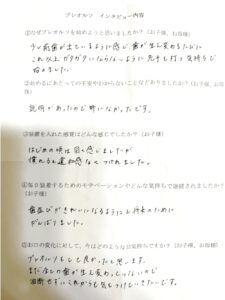 プレオルソ　インタビュー内容
①なぜプレオルソを始めようと思いましたか？（お子様、お母様）
少し前歯が出ているように感じ歯が生え変わるたびに
これ以上ガタガタにならないように先手を打つ気持ちで
始めました。
②始めるにあたっての不安やわからないことなどありましたか？（お子様、お母様）
説明があったので特になかったです。
③装置を入れた感覚はどんな感じでしたか？（お子様）
はじめの頃は固く感じましたが
慣れると違和感なくつけれました。
④毎日装着するためのモチベーションやどんな気持ちで継続されましたか？
（お子様）
歯並びがきれいになるようにと将来のために
がんばりました。
⑤お口の変化に対して、今はどのようなお気持ちですか？（お子様、お母様）
プレオルソをして良かったと思います。
まだ全ての歯が生え変わっていないので
油断せずにこれからも気をつけていきたいです。